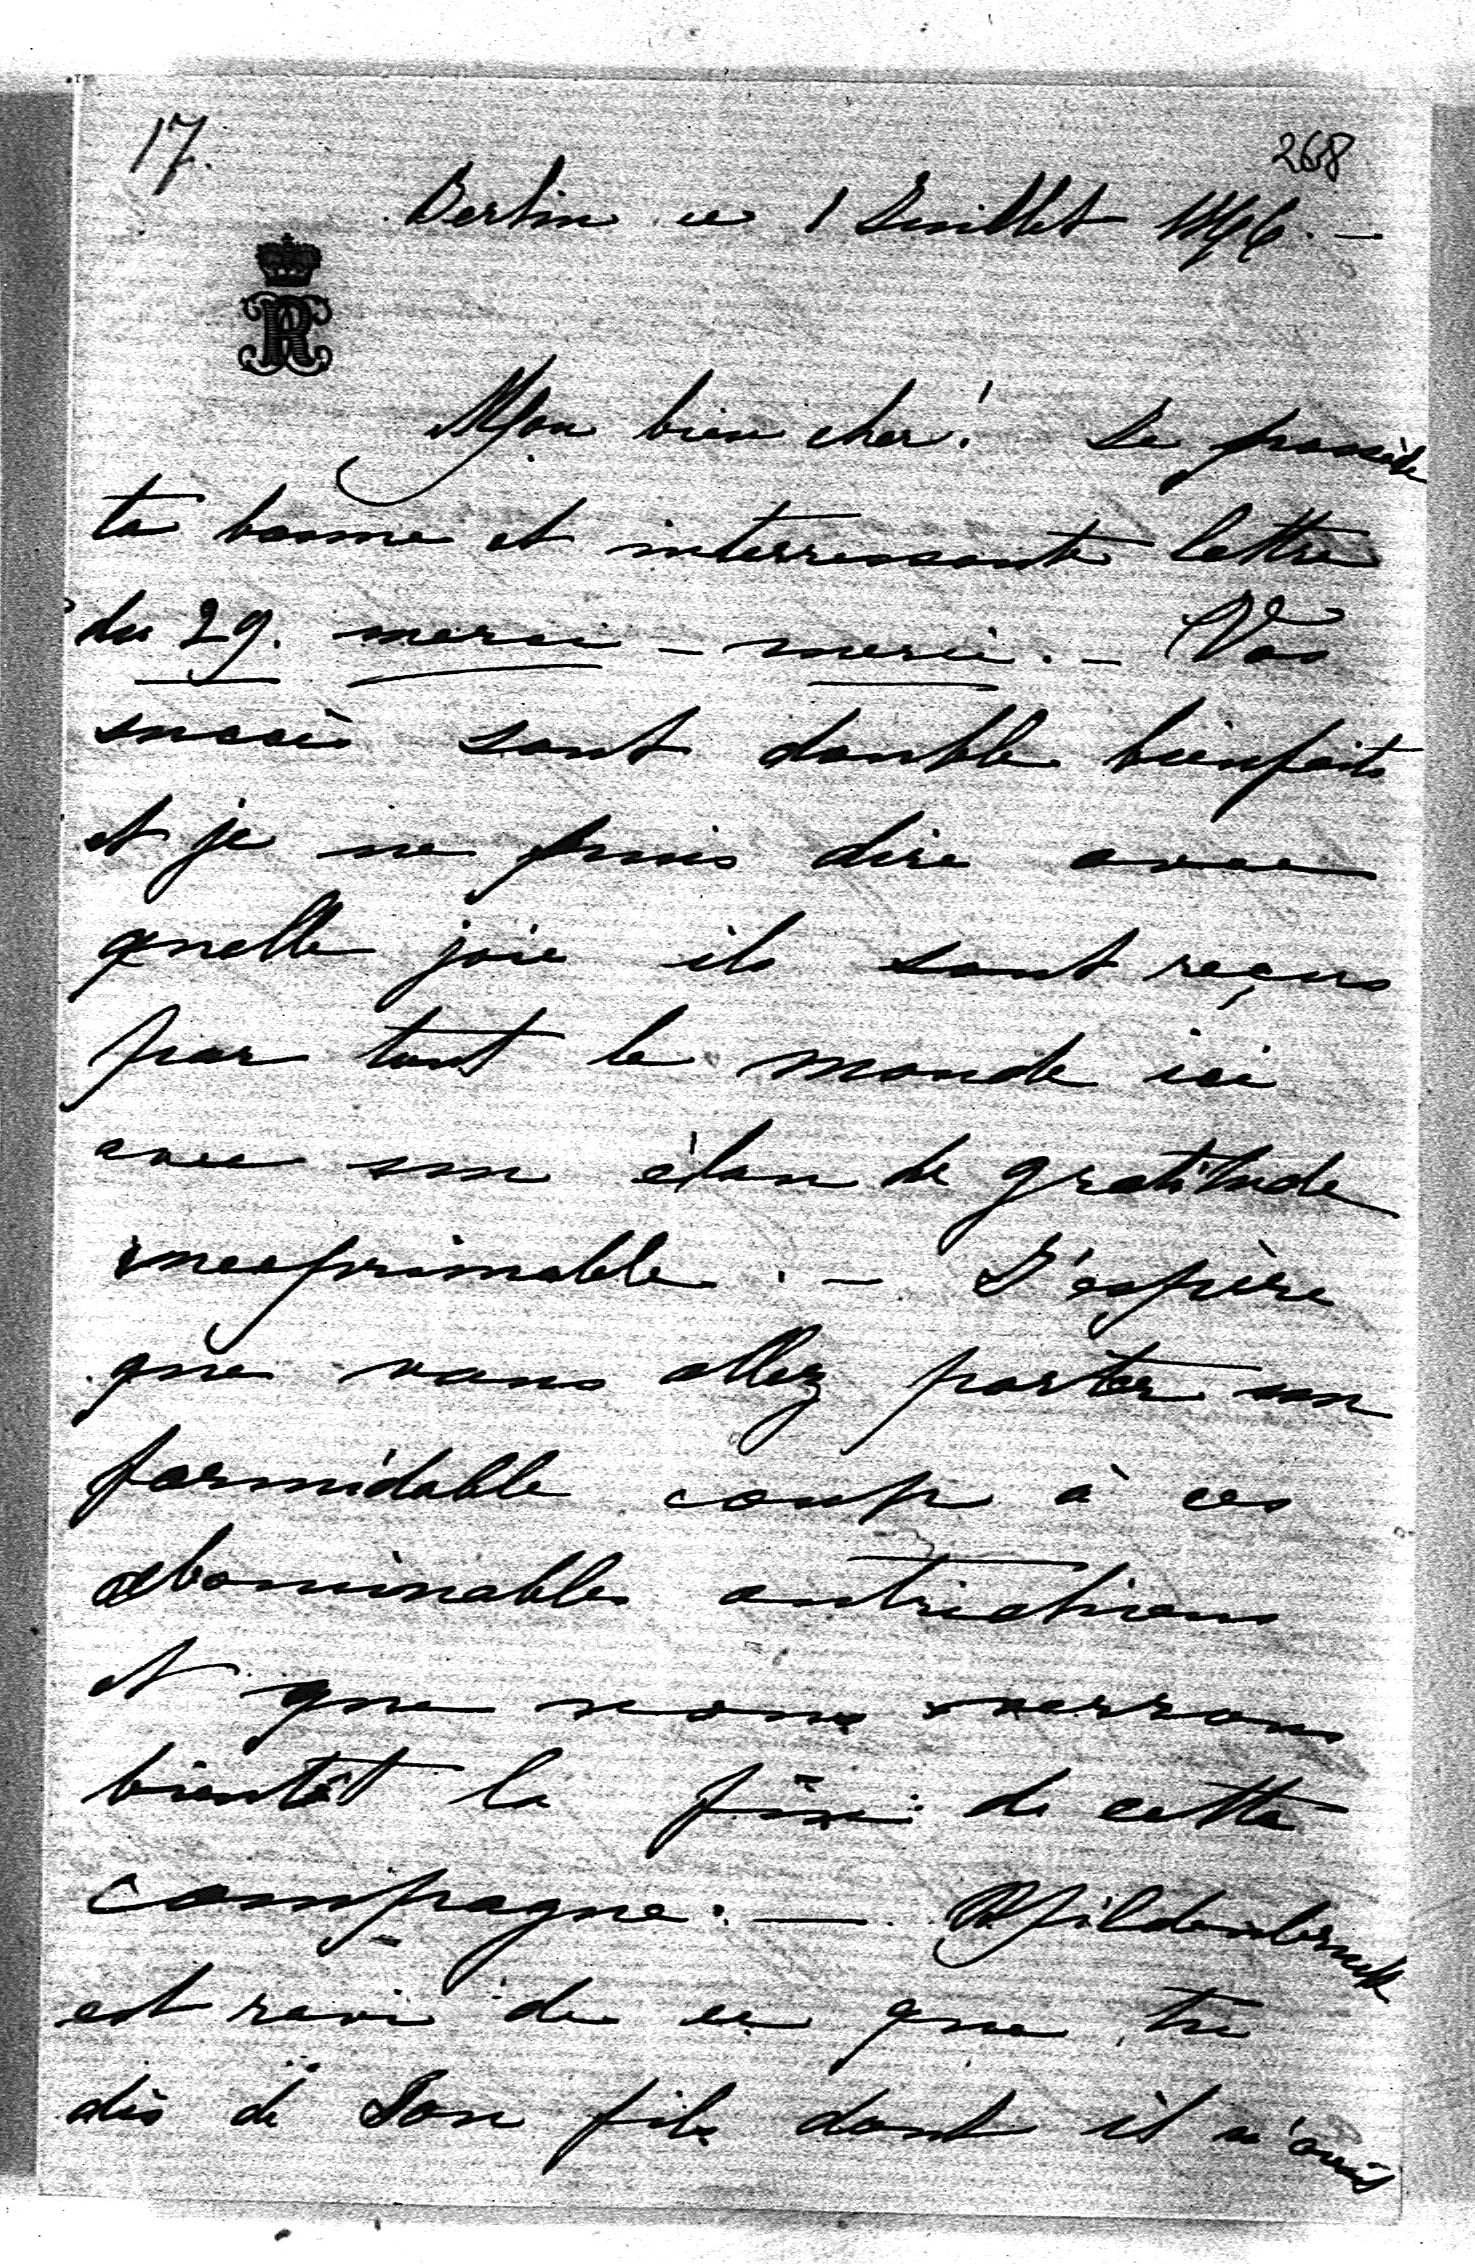 17.
268
Berlin ce 1 Juillet 1866. —
R
Mon bien cher! Je possède
ta bonne et interressante lettre
du 29. merci – merci. – Vos
succès sont double bienfaits
et je ne puis dire avec
quelle joie ils sont reçus
par tout le monde ici
avec un élan de gratitude
inexprimable. – J'espère
que vous allez porter un
formidable coup à ces
abominables autrichiens
et que nous verrons
bientôt la fin de cette
campagne. — Wildenbruck
est ravi de ce que tu
dis de Son fils dont il n'avait